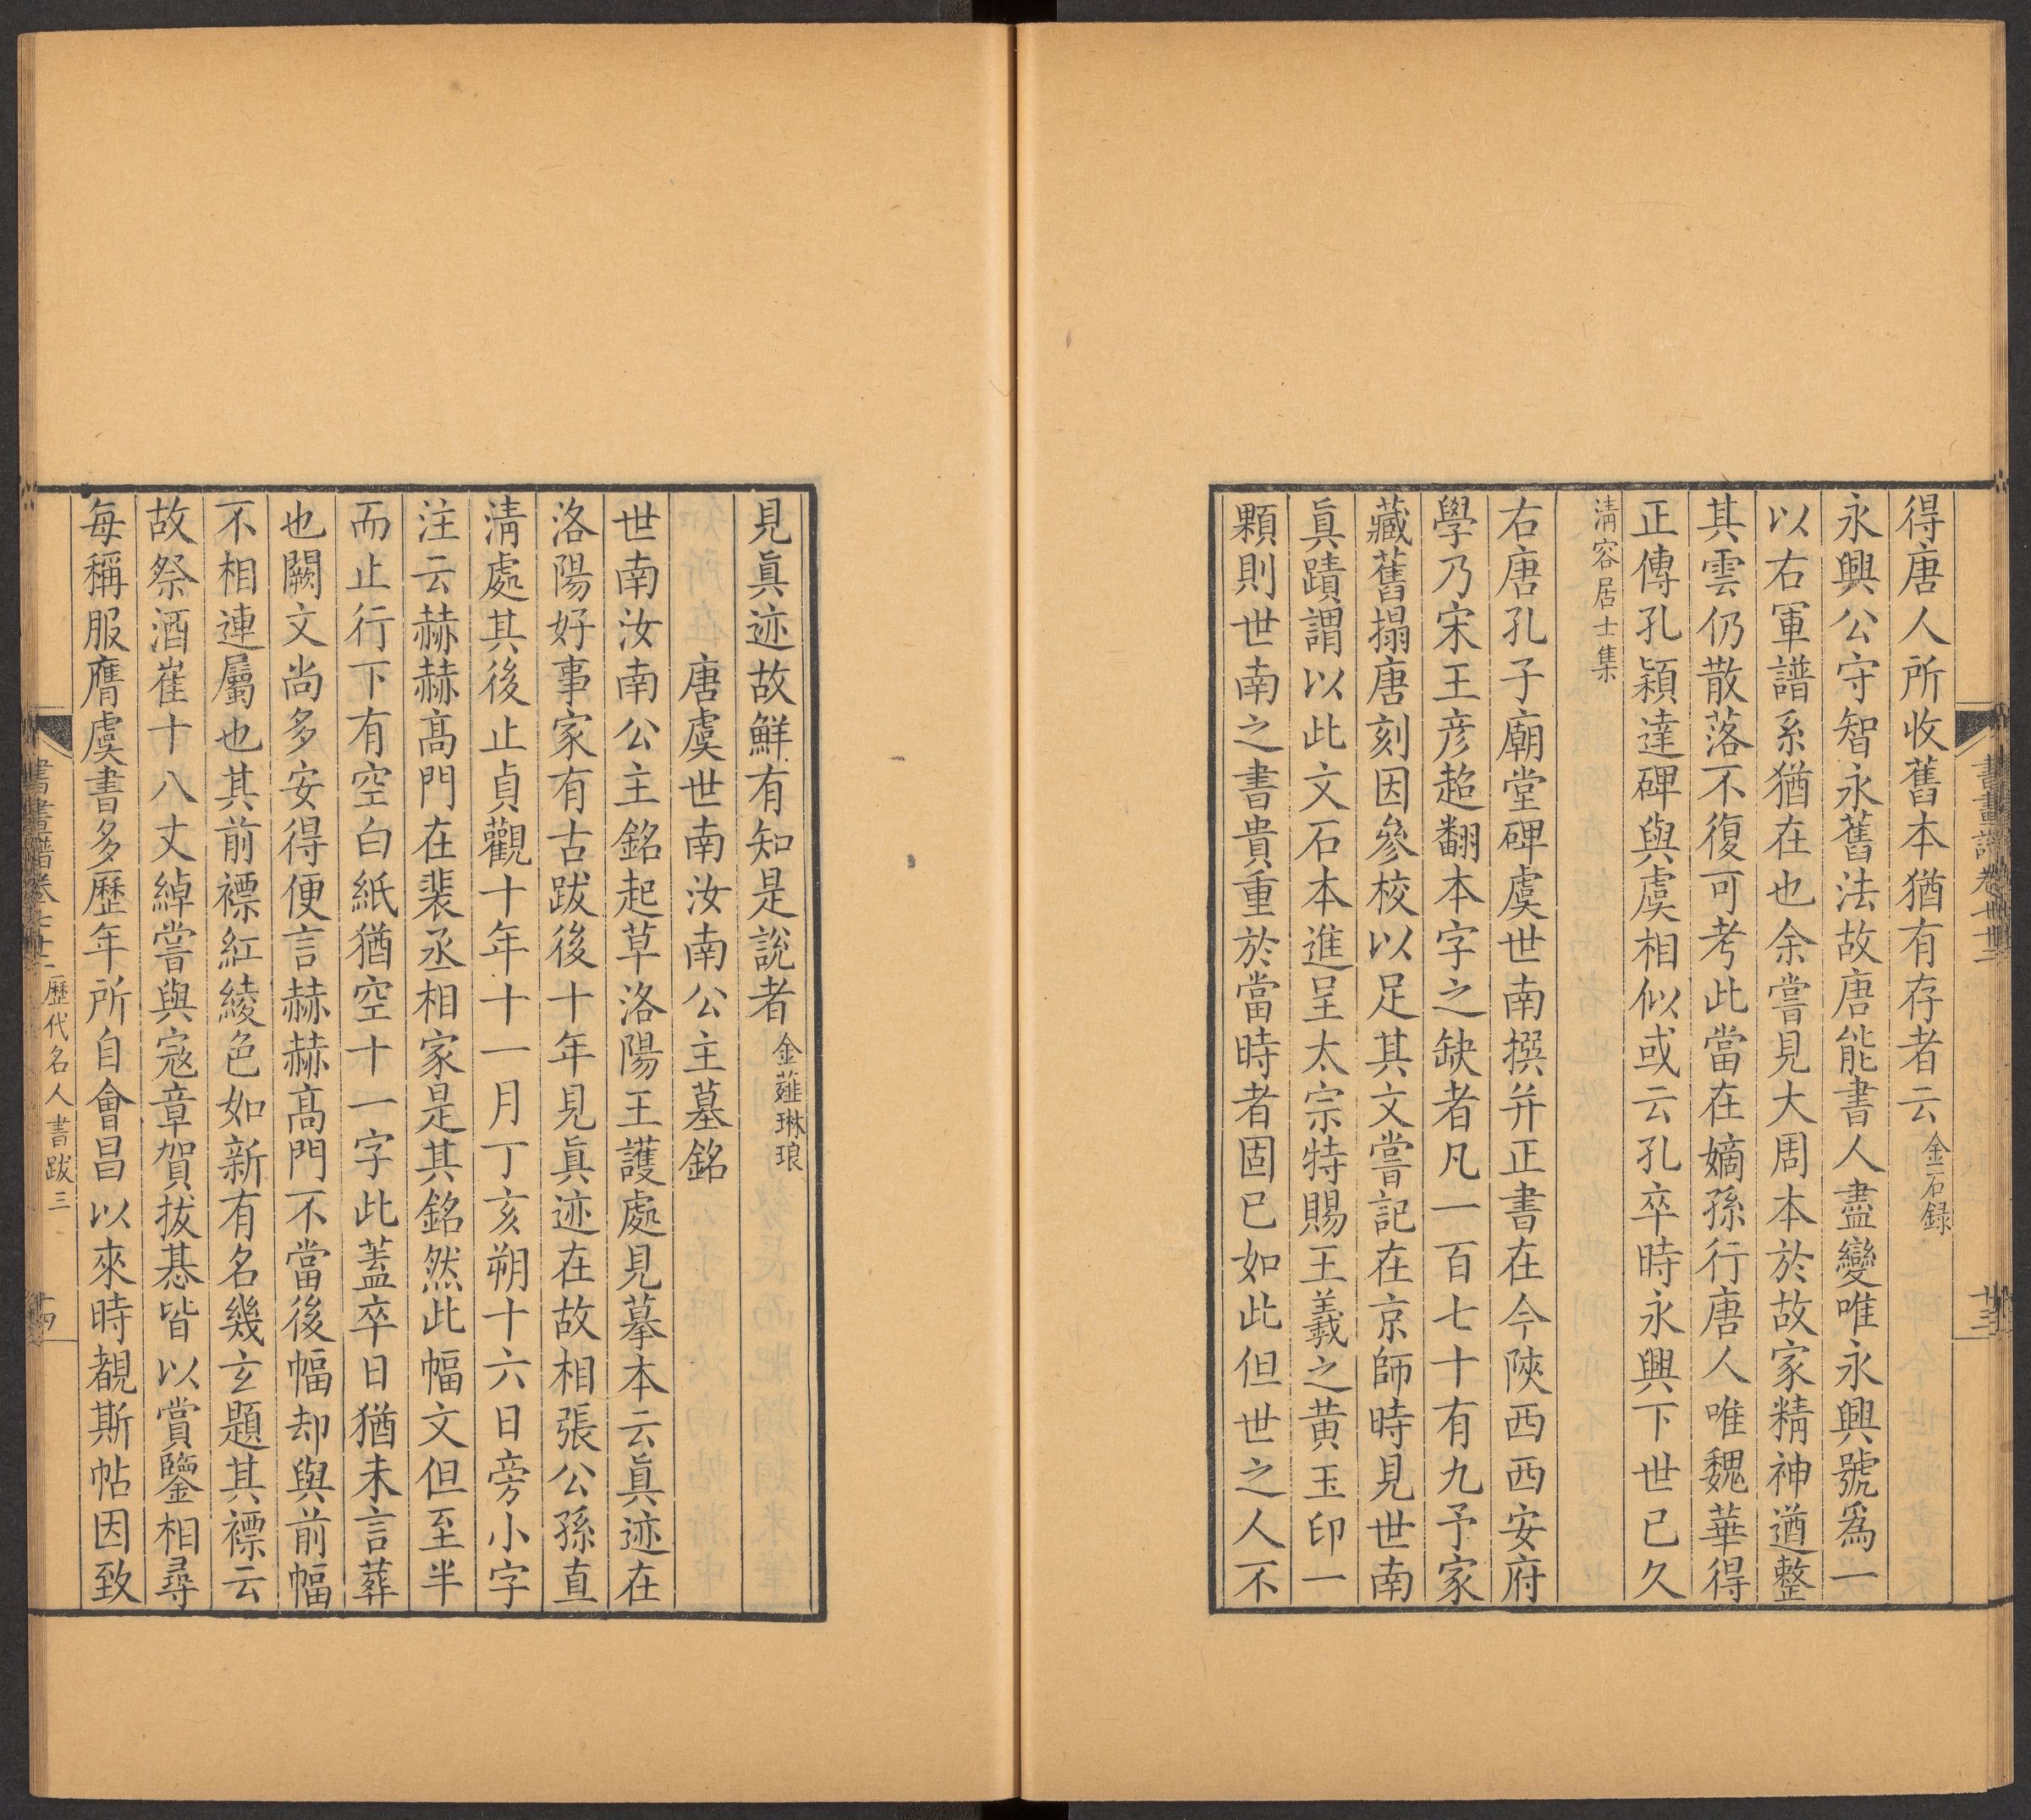 得唐人所收舊本猶有存者云金石録
永興公守智永舊法故唐能書人盡變唯永興號爲一
以右軍譜系猶在也余嘗見大周本於故家精神遒整
其雲仍散落不復可考此當在嫡孫行唐人唯魏華得
正傳孔穎達碑與虞相似或云孔卒時永興下世已久
淸容居士集
右唐孔子廟堂碑虞世南撰并正書在今陝西西安府
學乃宋王彦超翻本字之缺者凡一百七十有九予家
藏舊搨唐刻因參校以足其文嘗記在京師時見世南
眞蹟謂以此文石本進呈太宗特賜王羲之黄玉印一
顆則世南之書貴重於當時者固已如此但世之人不
見眞迹故鮮有知是說者金薤琳琅
唐虞世南汝南公主墓銘
世南汝南公主銘起草洛陽王護處見摹本云眞迹在
洛陽好事家有古跋後十年見眞迹在故相張公孫直
淸處其後止貞觀十年十一月丁亥朔十六日旁小字
注云赫赫高門在裴丞相家是其銘然此幅文但至半
而止行下有空白紙猶空十一字此蓋卒日猶未言葬
也闕文尚多安得便言赫赫高門不當後幅却與前幅
不相連屬也其前褾紅綾色如新有名幾玄題其褾云
故祭酒崔十八丈綽嘗與寇章賀拔惎皆以賞鑒相尋
每稱服膺虞書多歷年所自會昌以來時覩斯帖因致
歷代名人書跋三